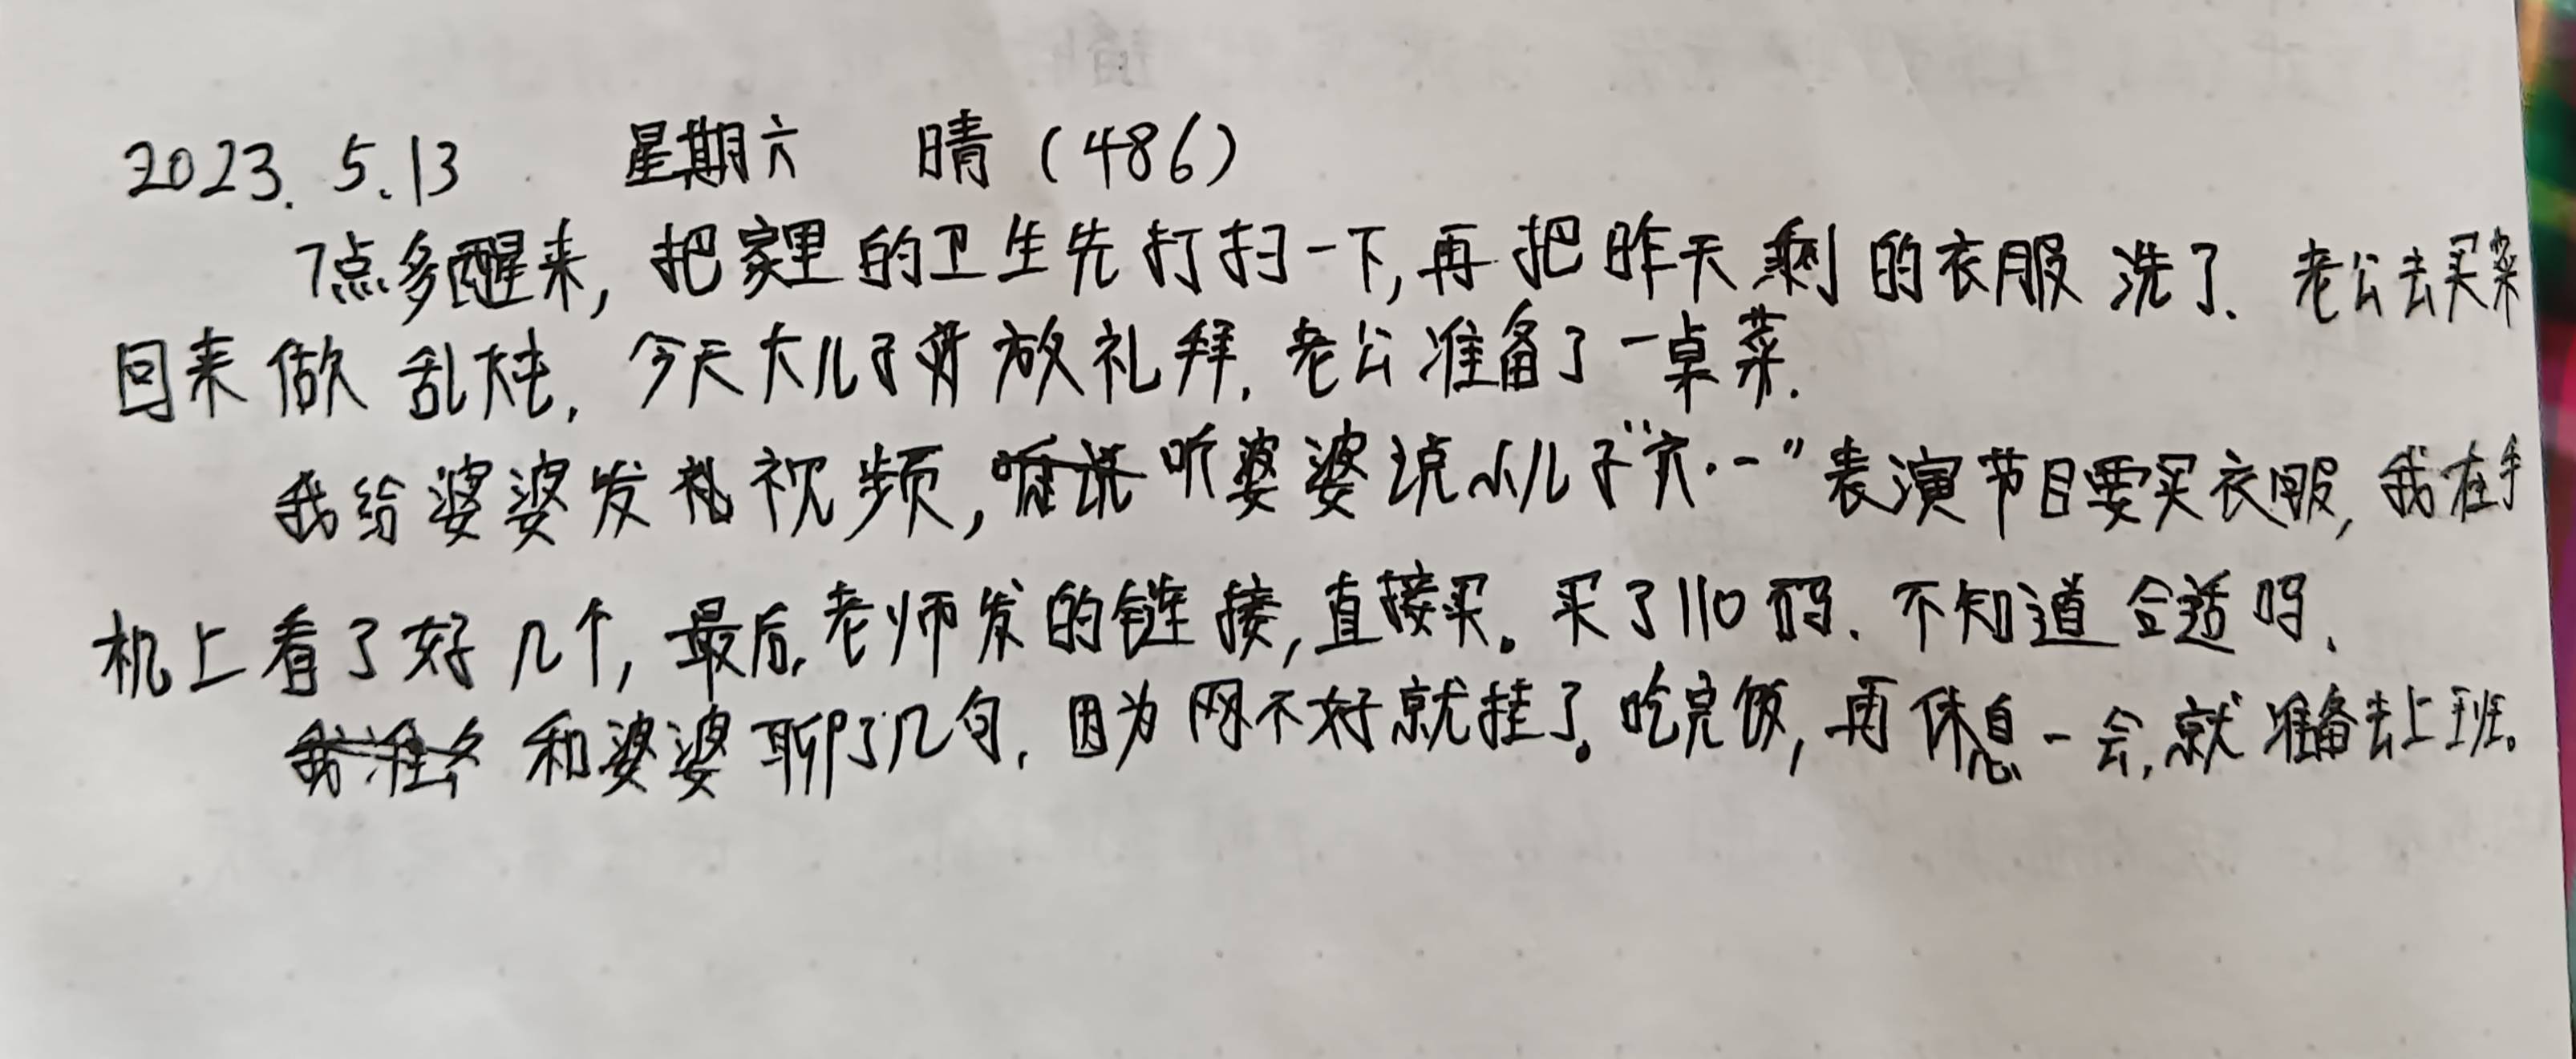 2023.5.13 星期六 晴(486)
7点多醒来,把家里的卫生先打扫一下,再把昨天剩的衣服洗了.老公去买菜
回来做乱炖.今天大儿子放礼拜.老公准备了一桌菜.
我给婆婆发视频,听婆婆说小儿子“六·一”表演节目要买衣服,我在手
机上看了好几个,最后,老师发的链接,直接买。买了110码.不知道合适吗.
和婆婆聊了几句.因为网不好就挂了。吃完饭,再休息一会,就准备去上班。